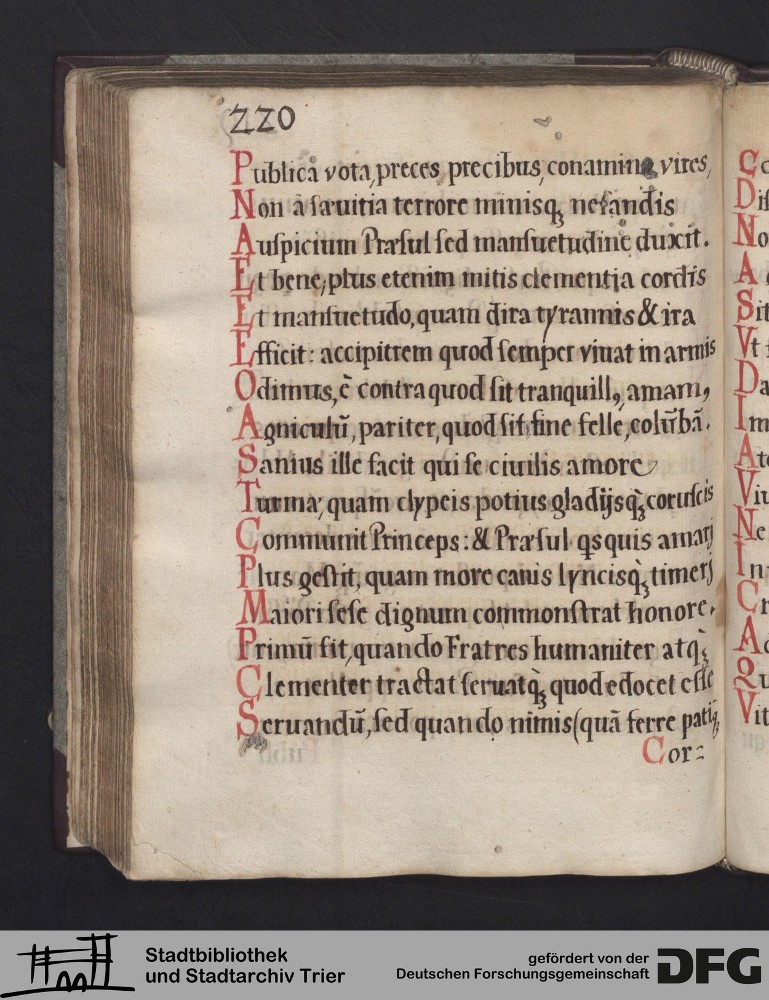 220
Publica vota, preces precibus, conamina, vires,
Non à sæuitia terrore minisqꝫ nefandis
Auſpicium Præſul ſed manſuetudine duxit.
Et bene, plus etenim mitis clementia cordis
Et manſuetudo, quam dira tyrannis & ira
Efficit: accipitrem quod ſemper viuat in armis
Odimus, è contra quod ſit tranquillꝰ, amamꝰ
Agniculũ, pariter, quod ſit ſine felle, colũbã.
Sanius ille facit qui ſe ciuilis amore
Turma, quam clypeis potius gladijsqꝫ coruſcis
Communit Princeps: & Præſul qſquis amarj
Plus geſtit, quam more canis lyncisqꝫ timerj
Maiori ſeſe dignum commonſtrat honore.
Primũ ſit, quando Fratres humaniter atqꝫ
Clementer tractat ſeruatqꝫ quod edocet eſſe
Seruandũ, ſed quando nimis (quã ferre patiꝫ
Cor=
C
Diſ
No
A
Sit
Vt
Da
Im
At
Viu
Ne
In
Cr
Ad
Qu
Vit
Stadtbibliothek
und Stadtarchiv Trier
gefördert von der
Deutschen Forschungsgemeinschaft
DFG